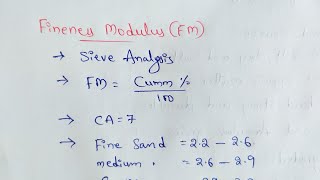 Fineness Modulus (FM)
→ Sieve Analysis
→ FM = Cumm %
100
→ CA = 7
→ Fine Sand = 2.2 – 2.6
medium " = 2.6 – 2.9